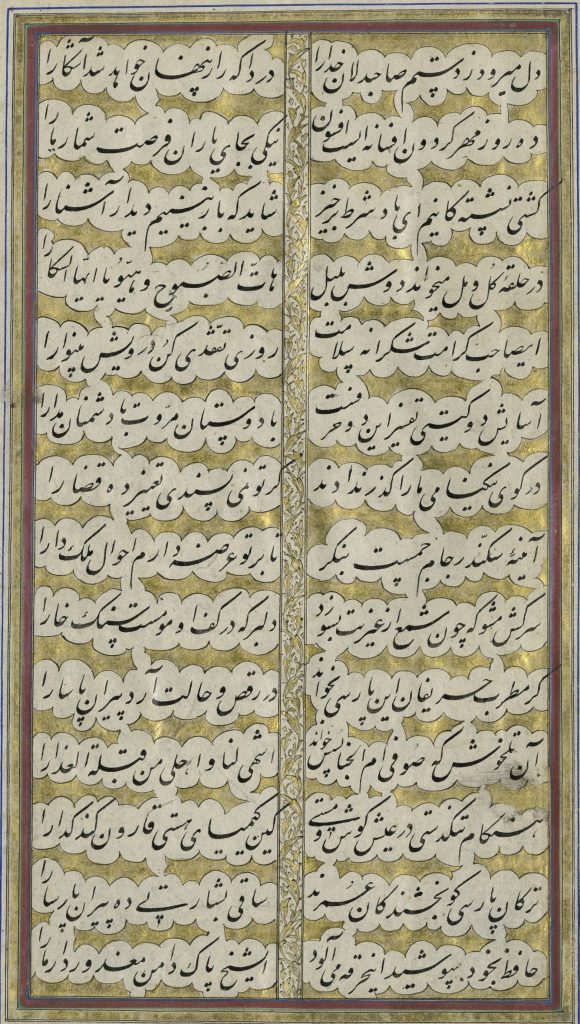 دل میرود ز دستم صاحبدلان خدا را
دردا که راز پنهان خواهد شد آشکارا
ده روز مهر گردون افسانه ایست افسون
نیکی بجای یاران فرصت شمار یارا
کشتی نشستگانیم ای باد شرطه برخیز
شاید که باز بینیم دیدار آشنا را
در حلقه گل و مل میخواند دوش بلبل
هات الصبوح و هبّو یا ایها السکارا
ایصاحب کرامت شکرانه سلامت
روزی تفقّدی کن درویش بینوا را
آسایش دو گیتی تفسیر این دو حرفست
با دوستان مروت با دشمنان مدارا
در کوی نیکنامی ما را گذر ندادند
گر تو نمی پسندی تغییر ده قضا را
آینهٔ سکندر جام جمست بنگر
تا بر تو عرضه دارم احوال ملک دارا
سرکش مشو که چون شمع از غیرتت بسوزد
دلبر که در کف او مومست سنگ خارا
گر مطرب حریفان این پارسی بخواند
در رقص و حالت آرد پیران پارسا را
آن تلخوش که صوفی ام الخبائثش خواند
اشهی لنا و احلی من قبلة العذارا
هنگام تنگدستی در عیش کوش و مستی
کین کیمیای هستی قارون کند گدا را
ترکان پارسی گو بخشندگان عمرند
ساقی بشارتی ده پیران پارسا را
حافظ بخود نپوشید اینخرقه می آلود
ایشیخ پاک دامن معذور دار ما را